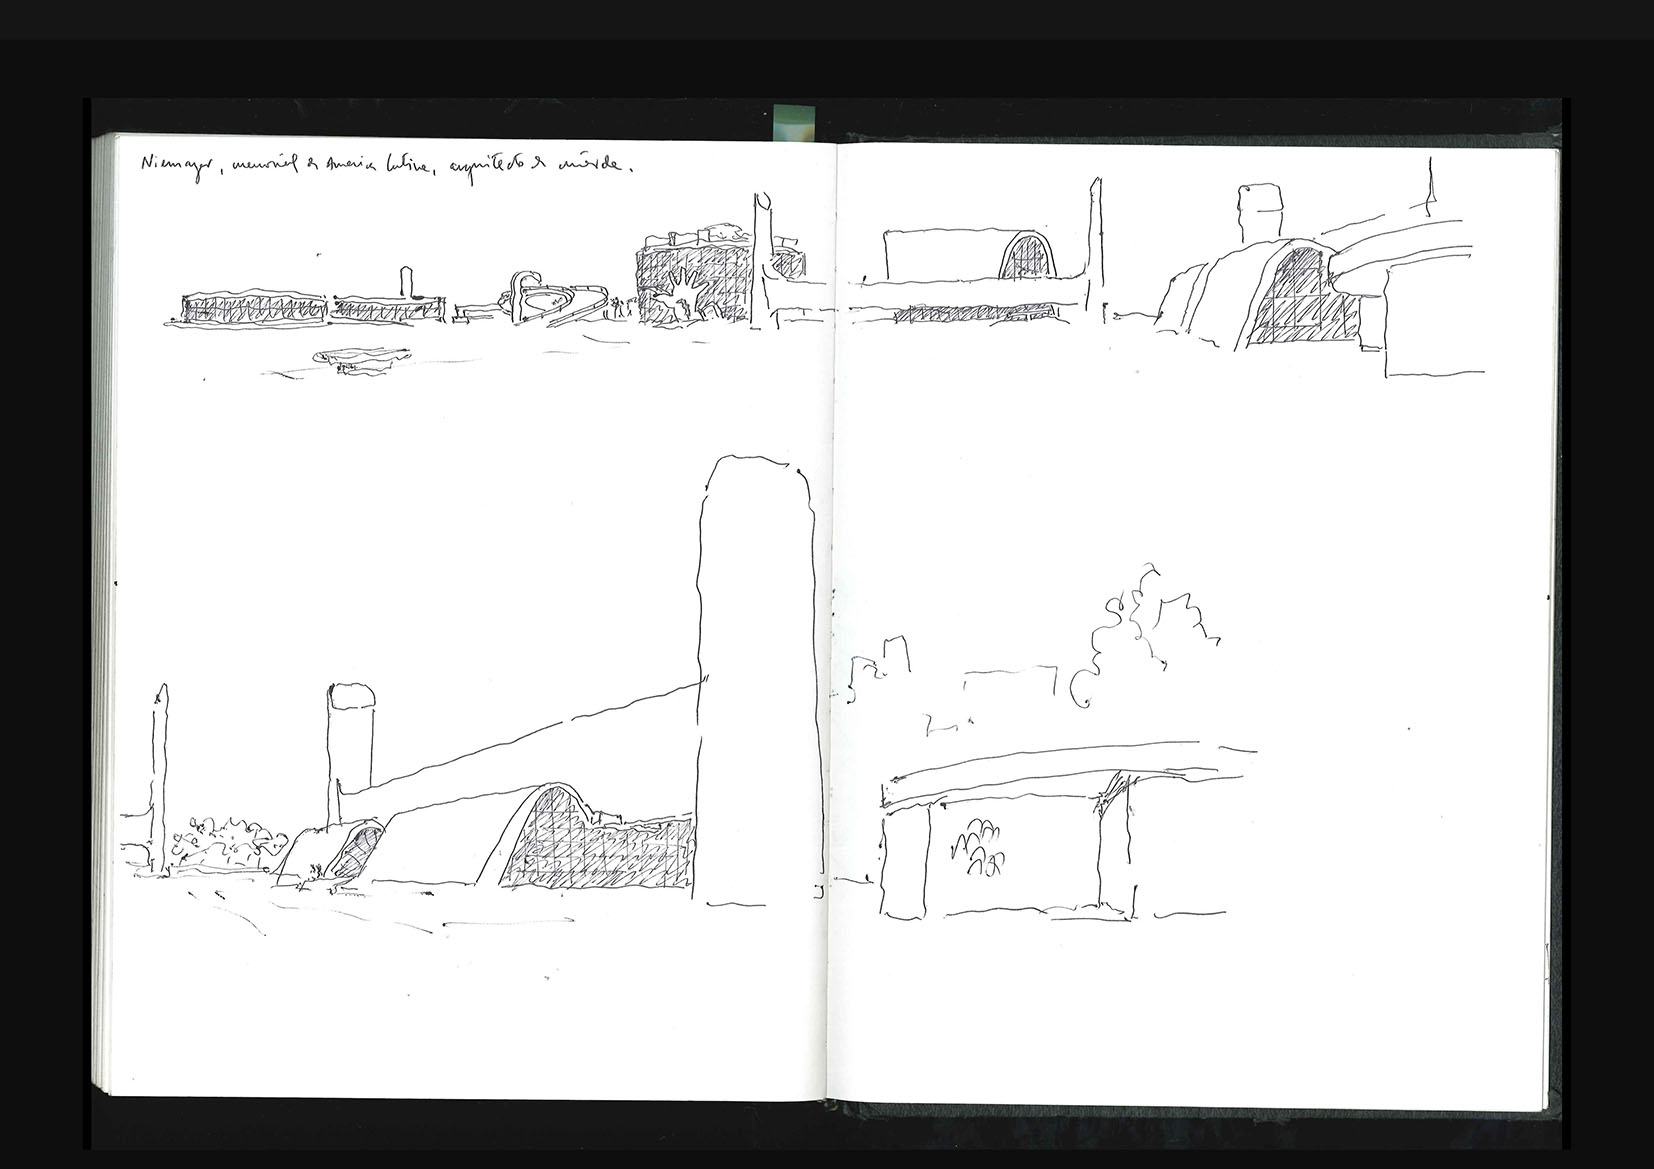 Niemayer, memorial da America Latina, arquitecto de mierda.